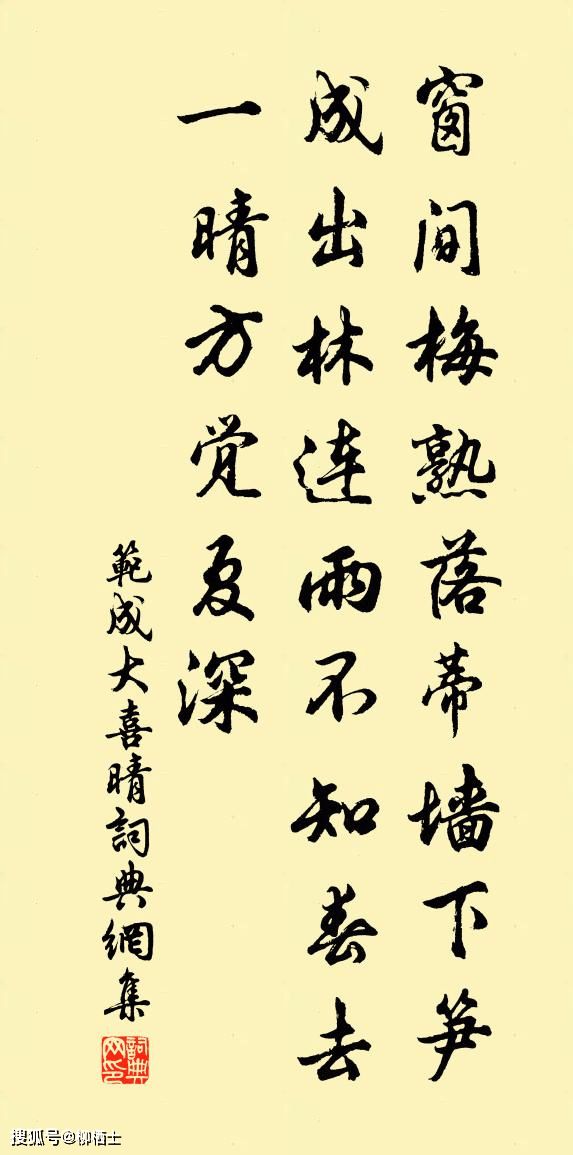 窗间梅熟落蒂墙下笋
成出林连雨不知春去
一晴方觉夏深
範成大喜晴詞典網集
詞典网印
搜狐号@柳栖士